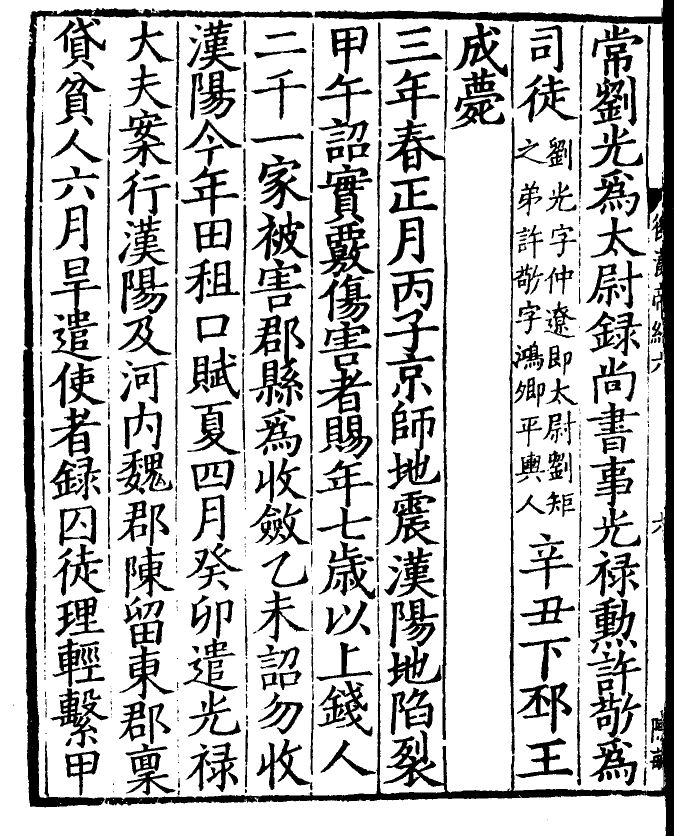 常劉光爲太尉録尚書事光禄勲許敬爲
司徒劉光字仲遼即太尉劉矩之弟許敬字鴻卿平輿人辛丑下邳王
成薨
三年春正月丙子京師地震漢陽地陷裂
甲午詔實覈傷害者賜年七歲以上錢人
二千一家被害郡縣爲收斂乙未詔勿收
漢陽今年田租口賦夏四月癸卯遣光禄
大夫案行漢陽及河内魏郡陳留東郡稟
貸貧人六月旱遣使者録囚徒理輕繫甲